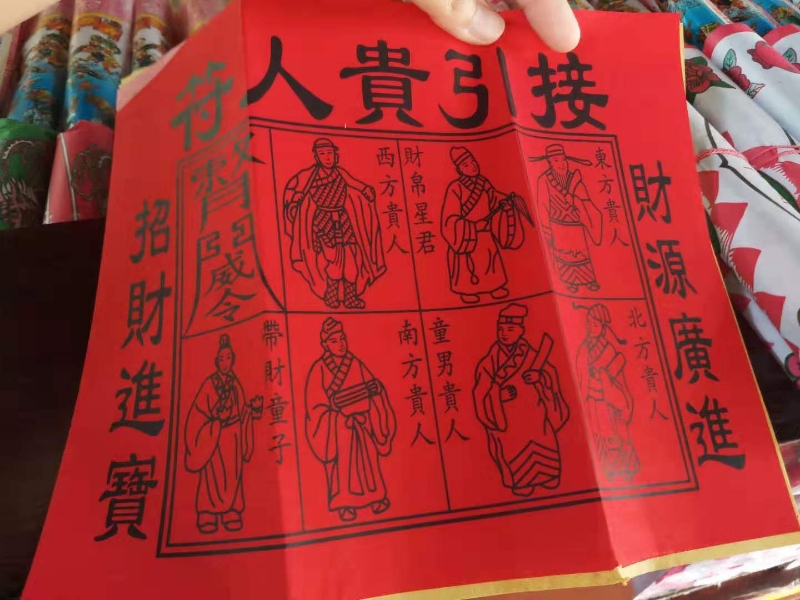 接引貴人符
財源廣進
東方貴人
財帛星君
西方貴人
北方貴人
童男貴人
南方貴人
帶財童子
招財進寶